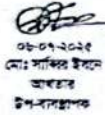 ০৮-০৭-২০২৫
মোঃ সাব্বির ইবনে
আখতার
উপ-ব্যবস্থাপক